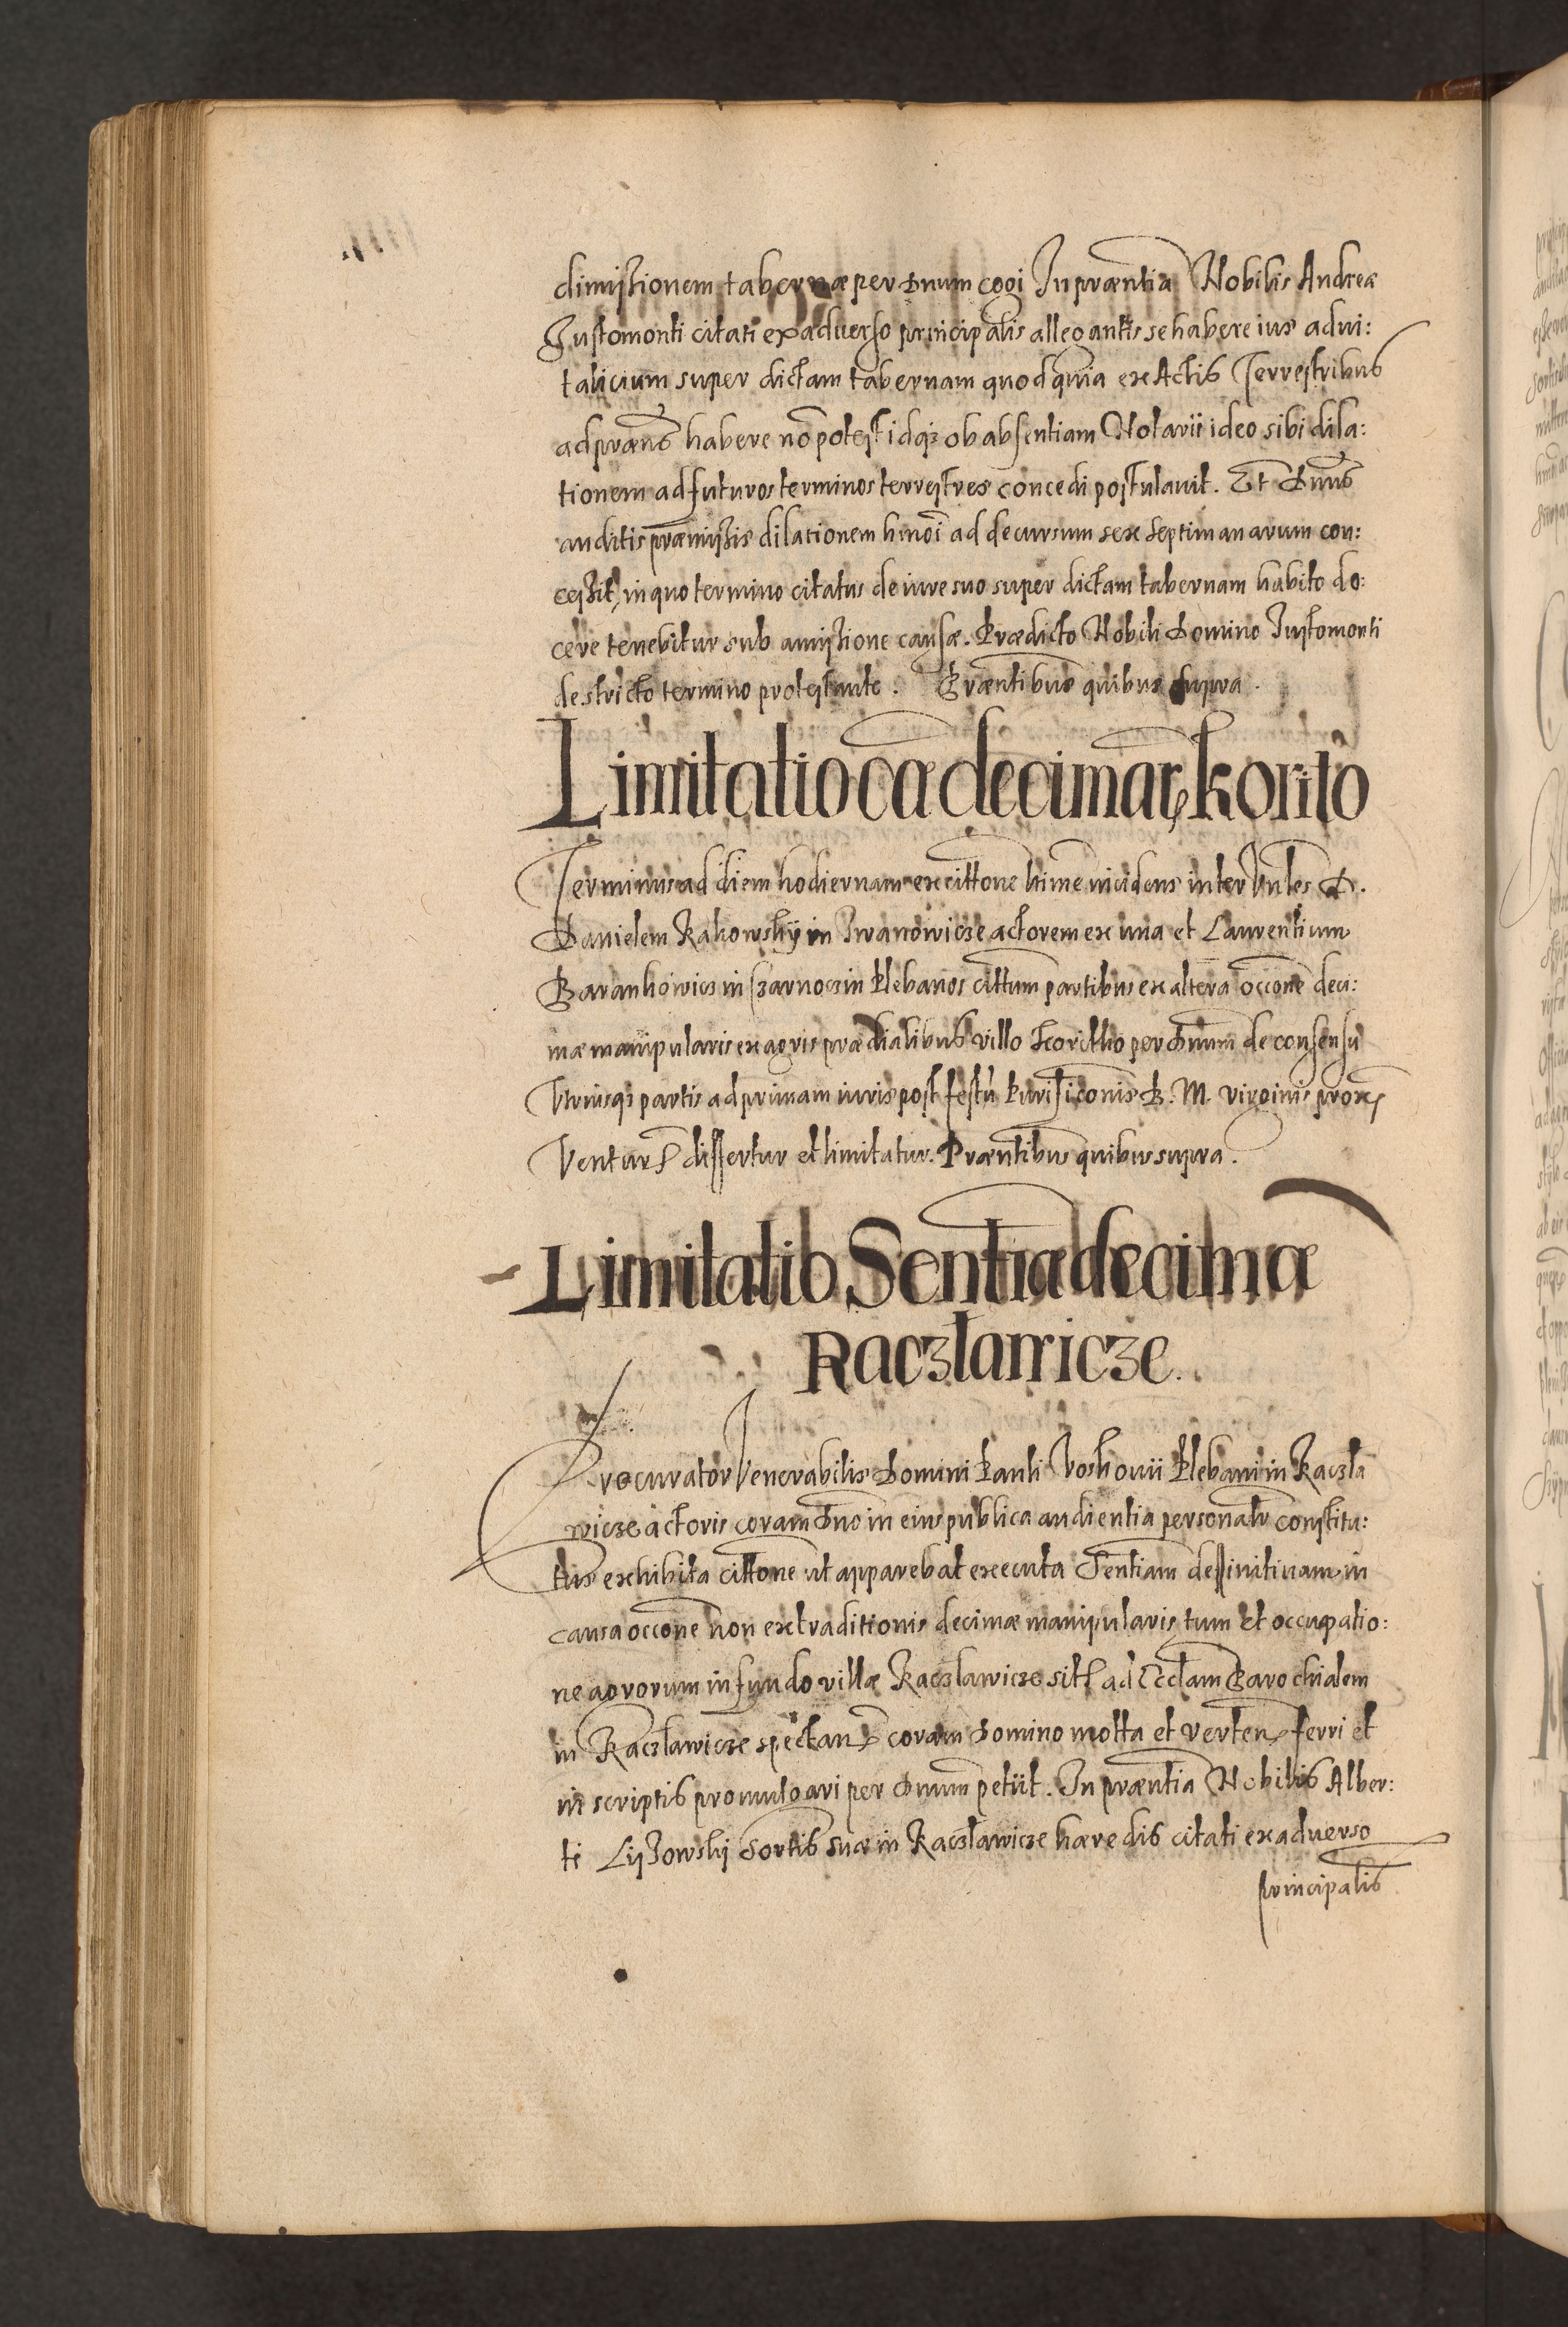 dimissionem tabernæ per Dnum cogi In præntia Nobilis Andreæ
Justomonti citati ex adverso principalis allegantis se habere ius advi:
talicium super dictam tabernam quod quia ex Actis Terrestribus
ad præns habere nō potest idqȝ ob absentiam Notarii ideo sibi dila:
tionem ad futuros terminos terrestres concedi postulavit. Et Dnus
auditis præmissis dilationem hmōi ad decursum sex Septimanarum con:
cessit, in quo termino citatus de iure suo super dictam tabernam habito do:
cere tenebitur sub amissione causæ. Prædicto Nobili Domino Justomonti
de stricto termino protestante. Præntibus quibus supra.
Limitatio cæ decimar, Korito
Terminus ad diem hodiernam ex cittone ltime incidens inter Vnles D.
Danielem Rakowskÿ in Iwanowicze actorem ex una et Laurentium
Barankowicz in Czarnoczin Plebanos cittum partibus ex altera occone deci:
mæ manipularis ex agris prædialibus villo Koritho per Dnum de consensu
Vtriusqȝ partis ad primam iuris post festū Purificonis B. M. virginis prox
Ventur differtur et limitatur. Præntibus quibus supra.
Limitatio Sentiæ decimæ
Raczlawicze.
Procurator Venerabilis Domini Pauli Voskouii Plebani in Raczla
wicze actoris coram Dno in eius publica audientia personalr constitu:
tus exhibita cittone ut apparebat executa Sentiam deffinitivam in
causa occone non extraditionis decimæ manipularis, tum et occupatio:
ne agrorum in fundo villæ Raczlawicze sit ad Ecclam Parochialem
in Raczlawicze spectan coram Domino motta et verten ferri et
in scriptis promulgari per Dnum petiit. In præntia Nobilis Alber:
ti Lyssowsky Sortis suæ in Raczlawicze hæredis citati ex adverso
principalis